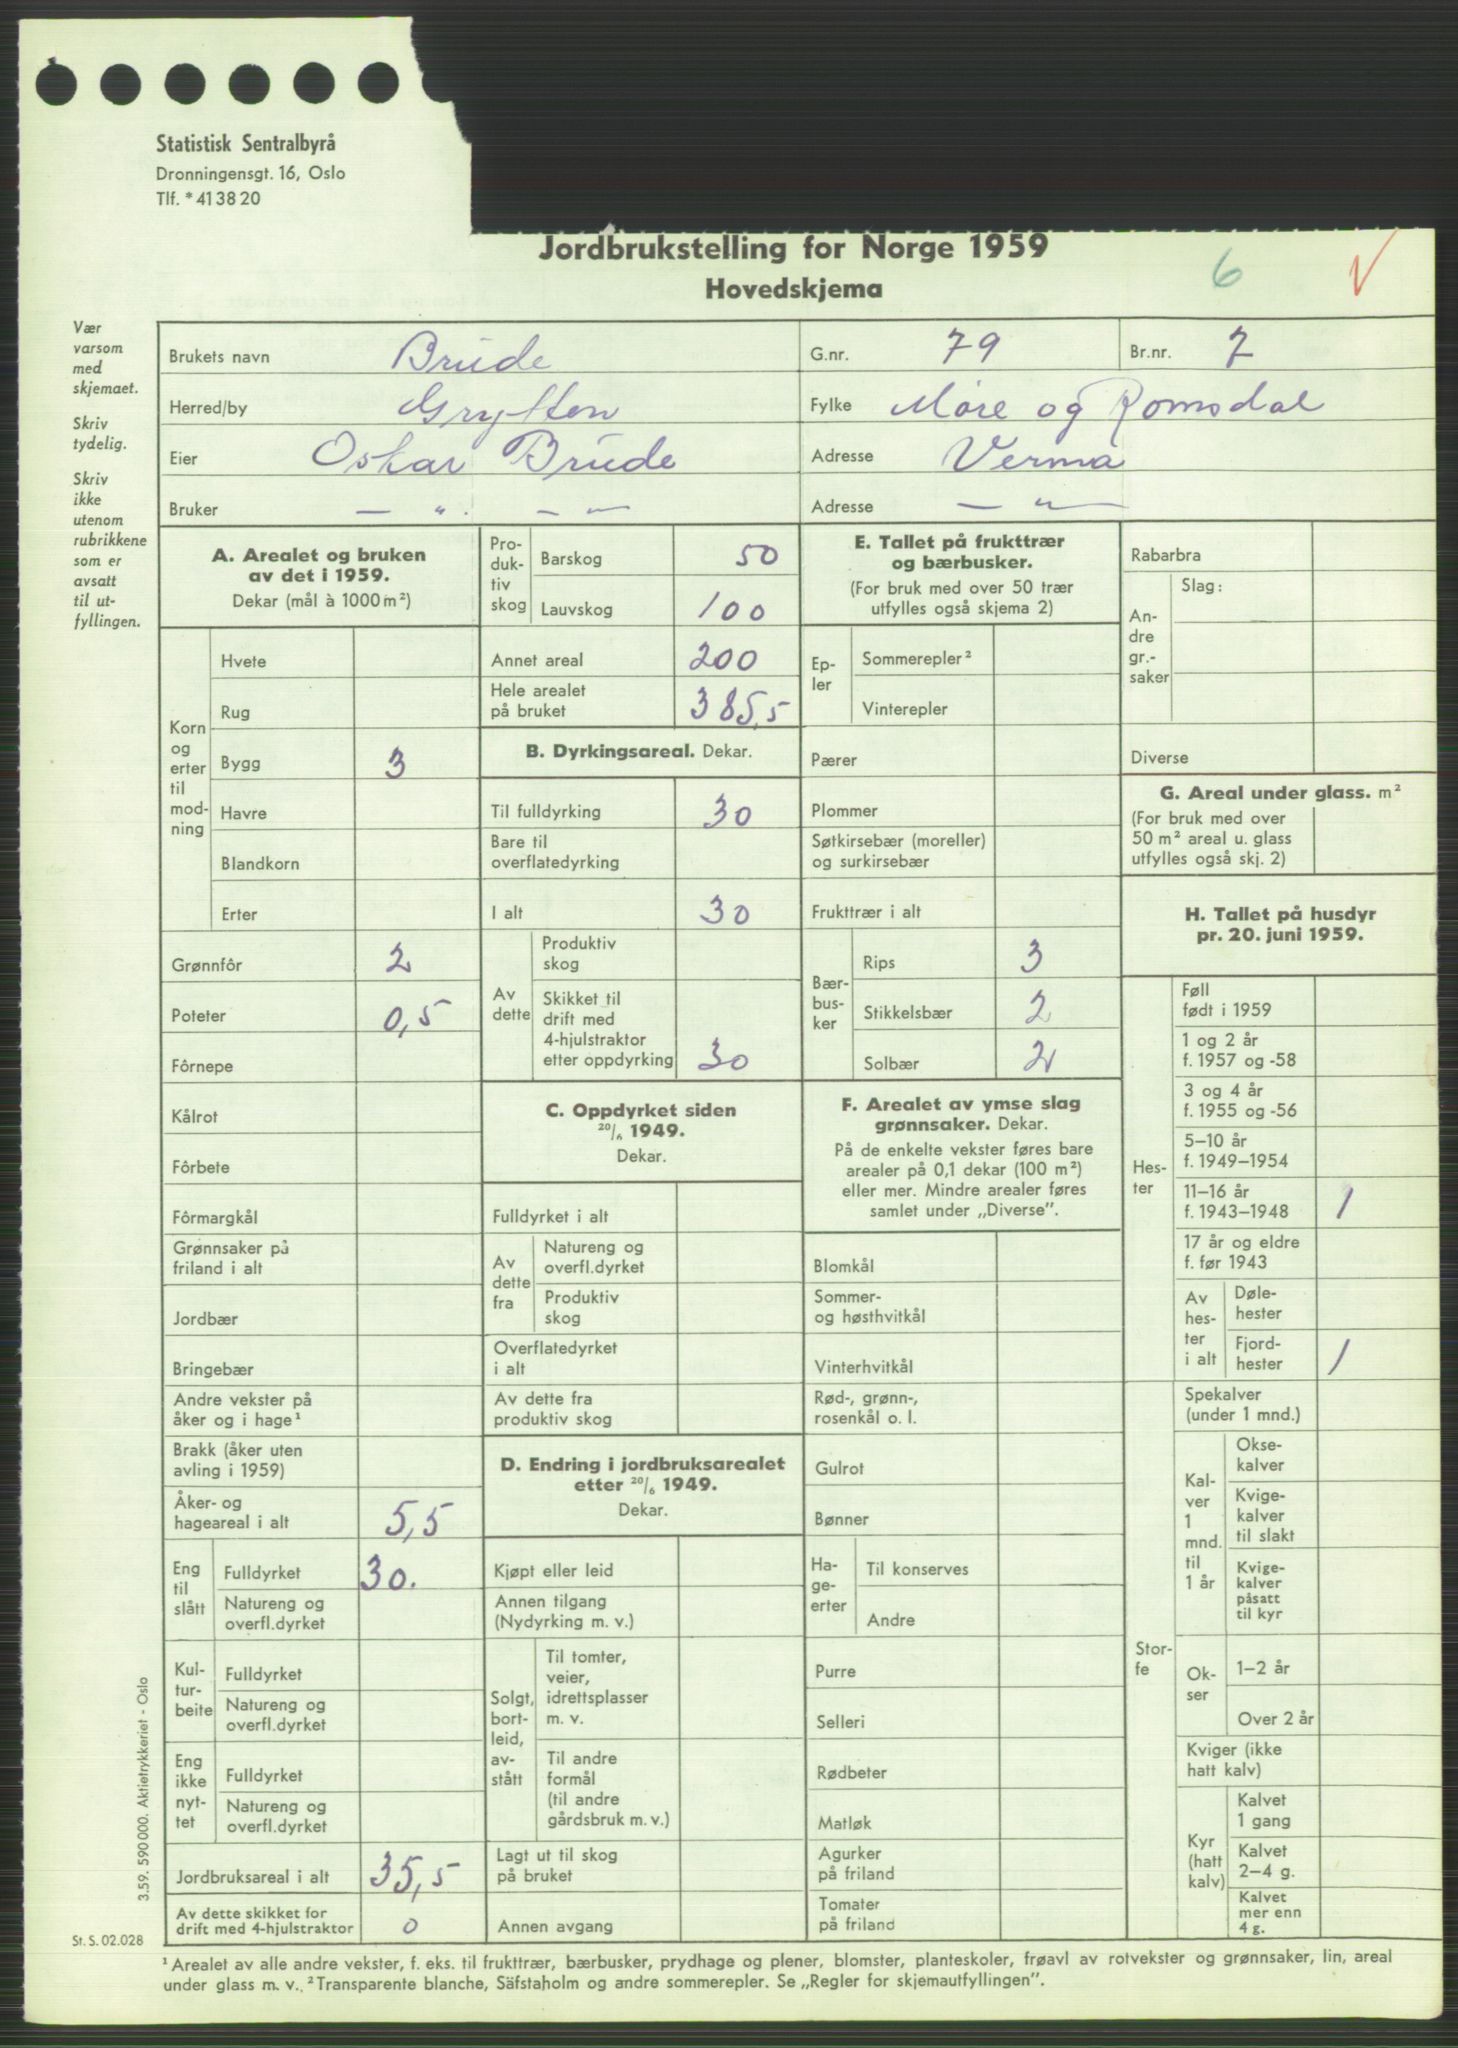 Statistisk Sentralbyrå
Dronningensgt. 16, Oslo
Tlf. * 41 38 20
Jordbrukstelling for Norge 1959
Hovedskjema
6
V
Vær
varsom
med
skjemaet.
Skriv
tydelig.
Skriv
ikke
utenom
rubrikkene
som er
avsatt
til ut-
fyllingen.
Brukets navn Brude G.nr. 79 Br.nr. 7
Herred/by Grytten Fylke Møre og Romsdal
Eier Oskar Brude Adresse Verma
Bruker — " — — " — Adresse — " —
A. Arealet og bruken
av det i 1959.
Dekar (mål à 1000 m²)
Korn
og
erter
til
mod-
ning
Hvete
Rug
Bygg 3
Havre
Blandkorn
Erter
Grønnfôr 2
Poteter 0,5
Fôrnepe
Kålrot
Fôrbete
Fôrmargkål
Grønnsaker på
friland i alt
Jordbær
Bringebær
Andre vekster på
åker og i hage¹
Brakk (åker uten
avling i 1959)
Åker- og
hageareal i alt 5,5
Eng
til
slått
Fulldyrket 30.
Natureng og
overfl.dyrket
Kul-
tur-
beite
Fulldyrket
Natureng og
overfl.dyrket
Eng
ikke
nyt-
tet
Fulldyrket
Natureng og
overfl.dyrket
Jordbruksareal i alt 35,5
Av dette skikket for
drift med 4-hjulstraktor 0
Pro-
duk-
tiv
skog
Barskog 50
Lauvskog 100
Annet areal 200
Hele arealet
på bruket 385,5
B. Dyrkingsareal. Dekar.
Til fulldyrking 30
Bare til
overflatedyrking
I alt 30
Av
dette
Produktiv
skog
Skikket til
drift med
4-hjulstraktor
etter oppdyrking 30
C. Oppdyrket siden
20/6 1949.
Dekar.
Fulldyrket i alt
Av
dette
fra
Natureng og
overfl.dyrket
Produktiv
skog
Overflatedyrket
i alt
Av dette fra
produktiv skog
D. Endring i jordbruksarealet
etter 20/6 1949.
Dekar.
Kjøpt eller leid
Annen tilgang
(Nydyrking m. v.)
Solgt,
bort-
leid,
av-
stått
Til tomter,
veier,
idrettsplasser
m. v.
Til andre
formål
(til andre
gårdsbruk m. v.)
Lagt ut til skog
på bruket
Annen avgang
E. Tallet på frukttrær
og bærbusker.
(For bruk med over 50 trær
utfylles også skjema 2)
Ep-
ler
Sommerepler²
Vinterepler
Pærer
Plommer
Søtkirsebær (moreller)
og surkirsebær
Frukttrær i alt
Bær-
bus-
ker
Rips 3
Stikkelsbær 2
Solbær 2
F. Arealet av ymse slag
grønnsaker. Dekar.
På de enkelte vekster føres bare
arealer på 0,1 dekar (100 m²)
eller mer. Mindre arealer føres
samlet under „Diverse”.
Blomkål
Sommer-
og høsthvitkål
Vinterhvitkål
Rød-, grønn-,
rosenkål o. l.
Gulrot
Bønner
Ha-
ge-
erter
Til konserves
Andre
Purre
Selleri
Rødbeter
Matløk
Agurker
på friland
Tomater
på friland
Rabarbra
An-
dre
gr.-
saker
Slag:
Diverse
G. Areal under glass. m²
(For bruk med over
50 m² areal u. glass
utfylles også skj. 2)
H. Tallet på husdyr
pr. 20. juni 1959.
Hes-
ter
Føll
født i 1959
1 og 2 år
f. 1957 og -58
3 og 4 år
f. 1955 og -56
5–10 år
f. 1949–1954
11–16 år
f. 1943–1948 1
17 år og eldre
f. før 1943
Av
hes-
ter
i alt
Døle-
hester
Fjord-
hester 1
Stor-
fe
Spekalver
(under 1 mnd.)
Kal-
ver
1
mnd.
til
1 år
Okse-
kalver
Kvige-
kalver
til slakt
Kvige-
kalver
påsatt
til kyr
Ok-
ser
1–2 år
Over 2 år
Kviger (ikke
hatt kalv)
Kyr
(hatt
kalv)
Kalvet
1 gang
Kalvet
2–4 g.
Kalvet
mer enn
4 g.
3.59. 590 000. Aktietrykkeriet - Oslo
St. S. 02.028
¹ Arealet av alle andre vekster, f. eks. til frukttrær, bærbusker, prydhage og plener, blomster, planteskoler, frøavl av rotvekster og grønnsaker, lin, areal
under glass m. v. ² Transparente blanche, Säfstaholm og andre sommerepler. Se „Regler for skjemautfyllingen”.